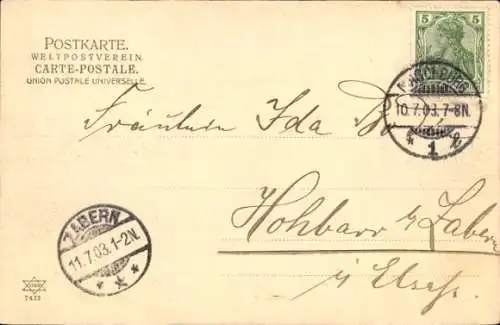 POSTKARTE.
WELTPOSTVEREIN
CARTE-POSTALE.
UNION POSTALE UNIVERSELLE.
5 5
10.7.03.7-8N.
* 1 l
Fräulein Ida
Hohbarr b/ Zabern
i/ Elsaß.
ZABERN
11.7.03.1-2N.
7433